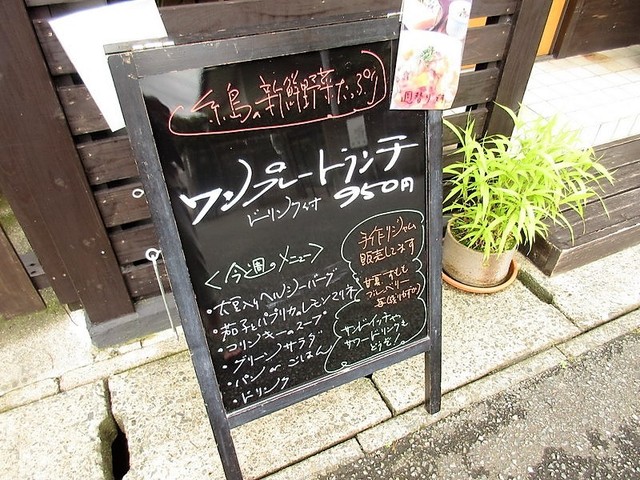 糸島の新鮮野菜たっぷり
ワンプレートランチ
950円
ドリンク付
<今週のメニュー>
・大豆入りヘルシーバーグ
・茄子とパプリカのレモンマリネ
・コリンキーのスープ
・グリーンサラダ
・パン or ごはん
・ドリンク
手作りジャム
販売してます
甘夏・すもも
ブルーベリー
サンドイッチや
サワードリンクも
どうぞ!
週替り